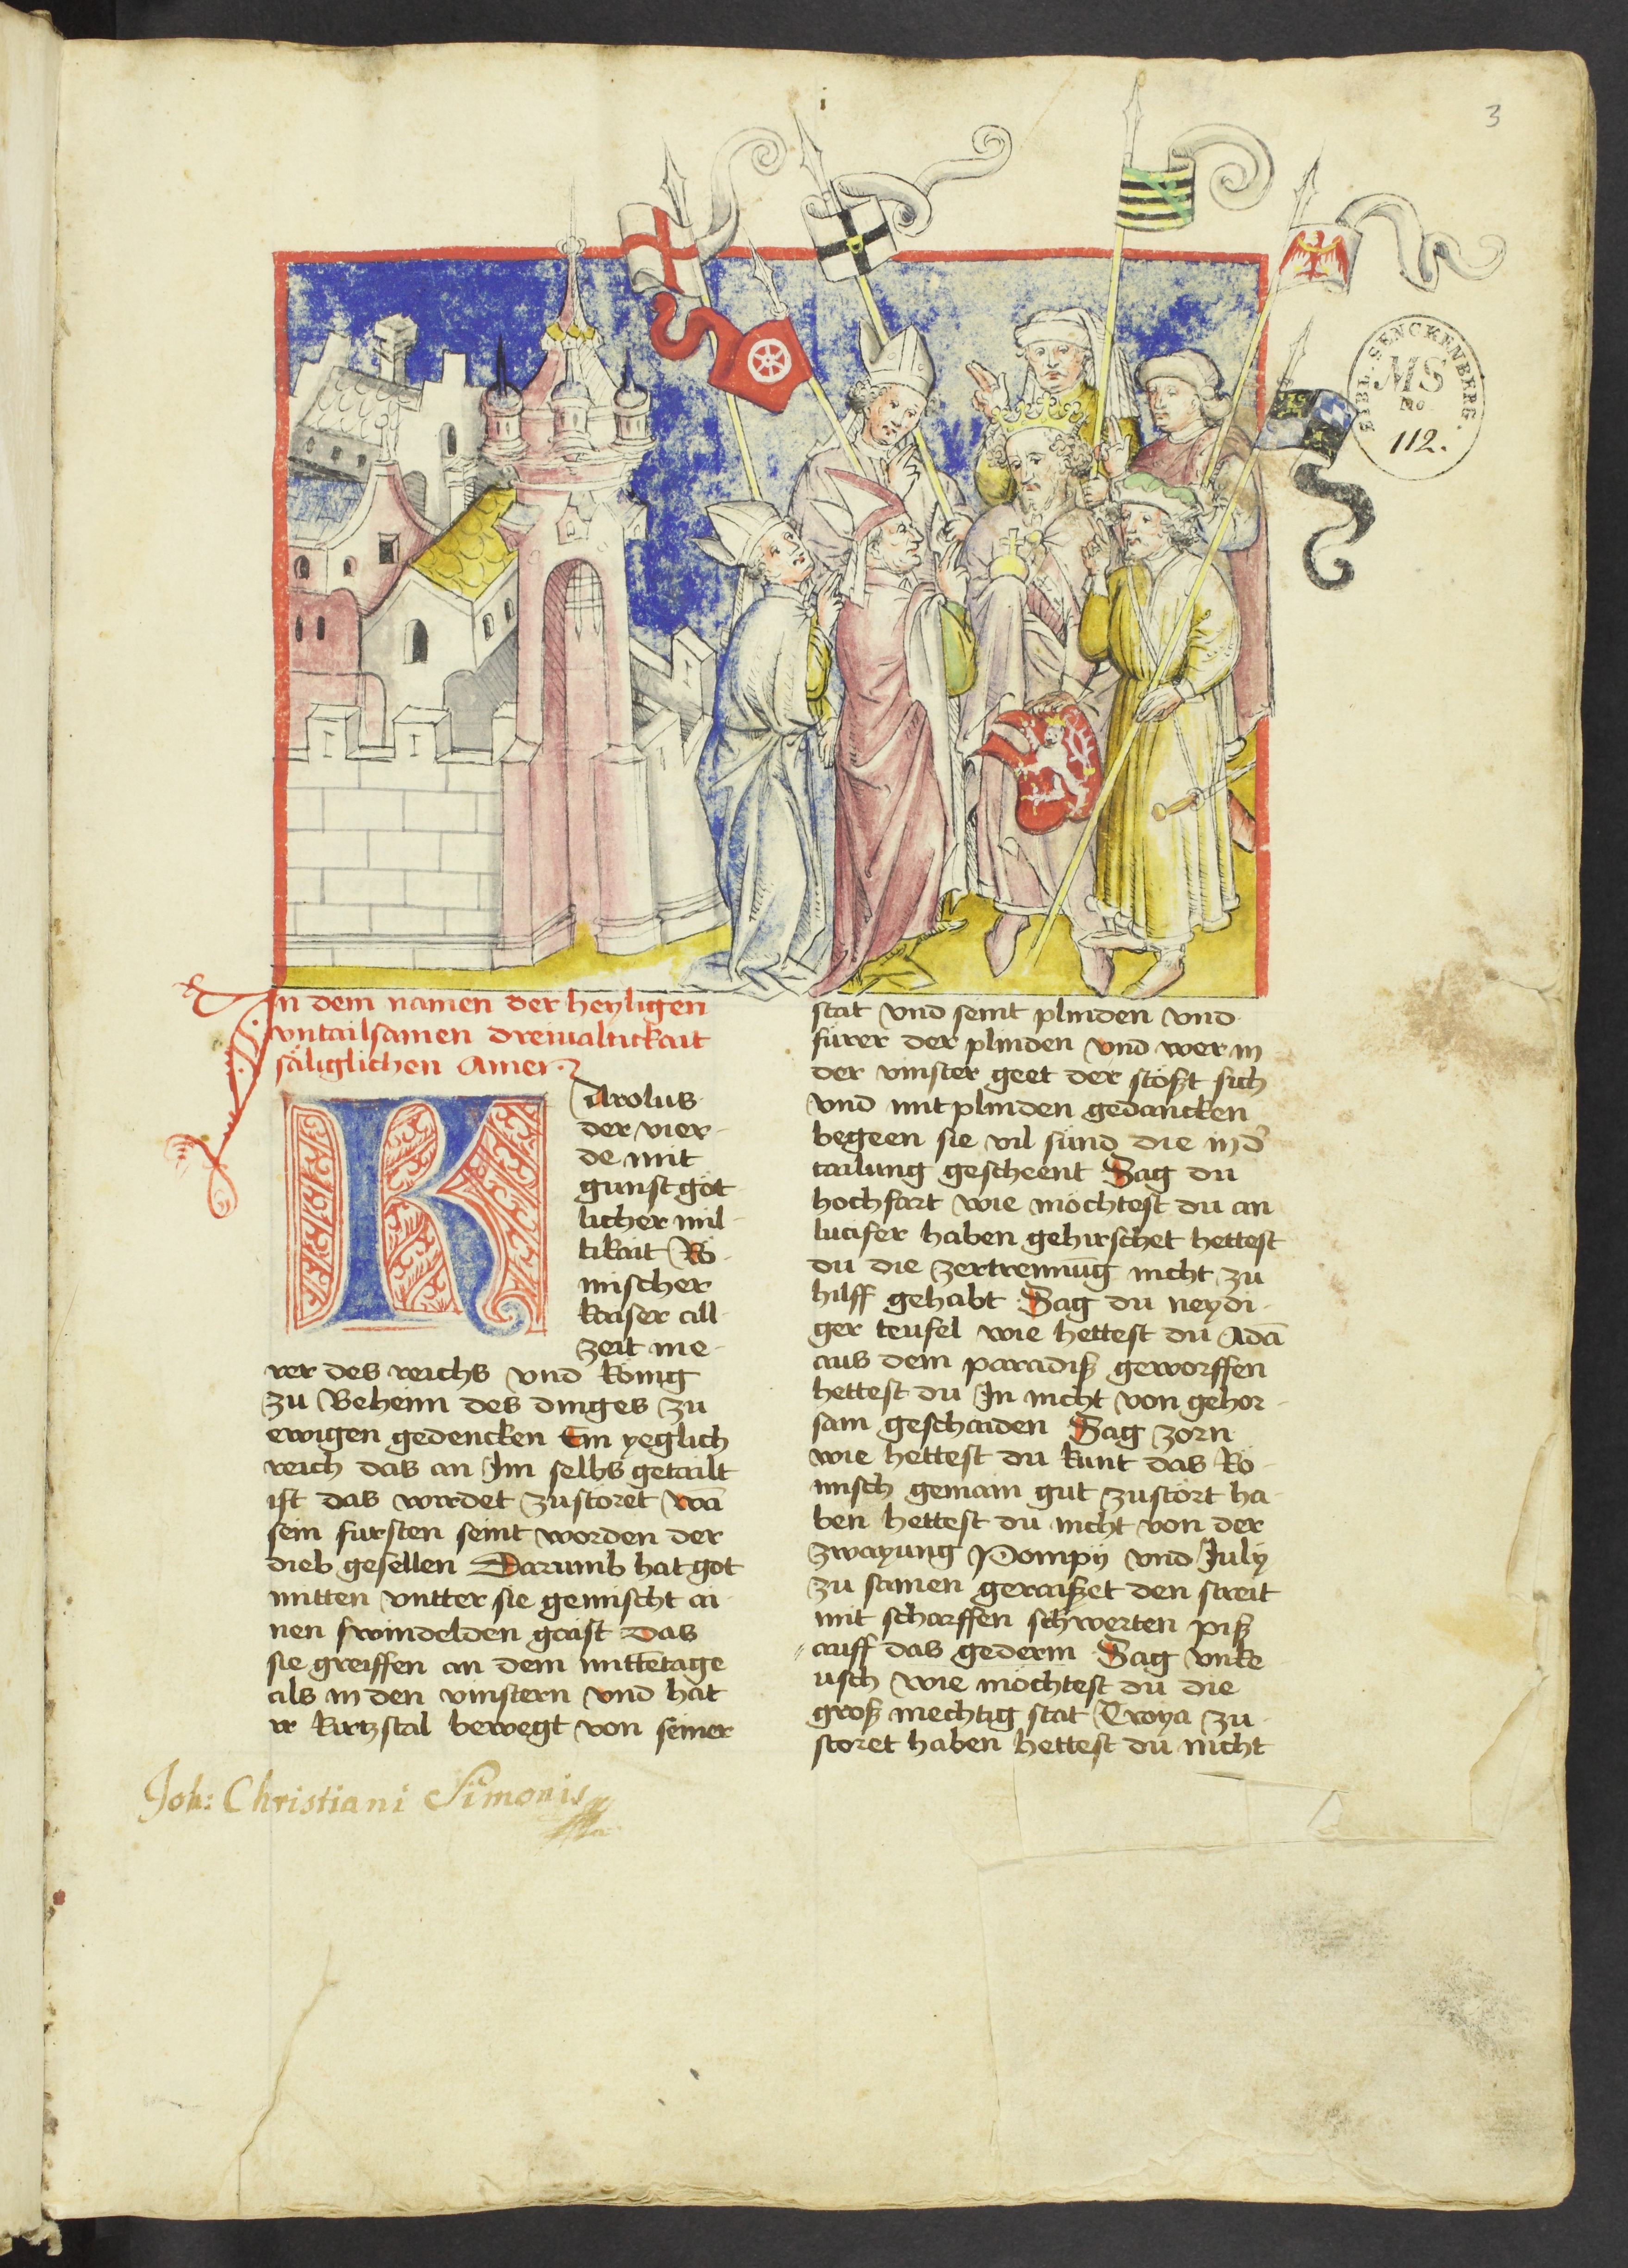 i
3
BIBL. SENCKENBERG.
MS
No
112.
In dem namen der heyligen
vntailsamen dreiualtickait
säliglichen Amen
Karolus
der vier-
de mit
gunst göt-
licher mil-
tikait Rö-
mischer
kaiser all-
zeit me-
rer des reichs vnd König
zu Beheim des dinges zu
ewigen gedencken Ein yeglich
reich das an Im selbs getailt
ist das wirdet zustöret wā
sein fursten seint worden der
dieb gesellen Darumb hat got
mitten vntter sie gemischt ai-
nen swindelden gaist das
sie greiffen an dem mittētage
als in den vinstern vnd hat
ir kirtzstal bewegt von seiner
stat vnd seint plinden vnd
fürer der plinden vnd wer in
der vinster geet der stößt sich
vnd mit plinden gedancken
begeen sie vil sünd die in d̄
tailung gescheent Sag du
hochfart wie möchtest du an
lucifer haben gehirschet hettest
du die zertrennūg nicht zu
hilff gehabt Sag du neydi-
ger teufel wie hettest du Adā
aus dem paradiß geworffen
hettest du In nicht von gehor-
sam geschaiden Sag zorn
wie hettest du kunt das Rö-
misch gemain gut zustört ha-
ben hettest du nicht von der
zwayung Pompij vnd July
zu samen geraißet den streit
mit scharffen schwerten piß
auff das gederm Sag vnke-
usch wie möchtest du die
groß mechtig stat Troya zu-
störet haben hettest du nicht
Joh: Christiani Simonis